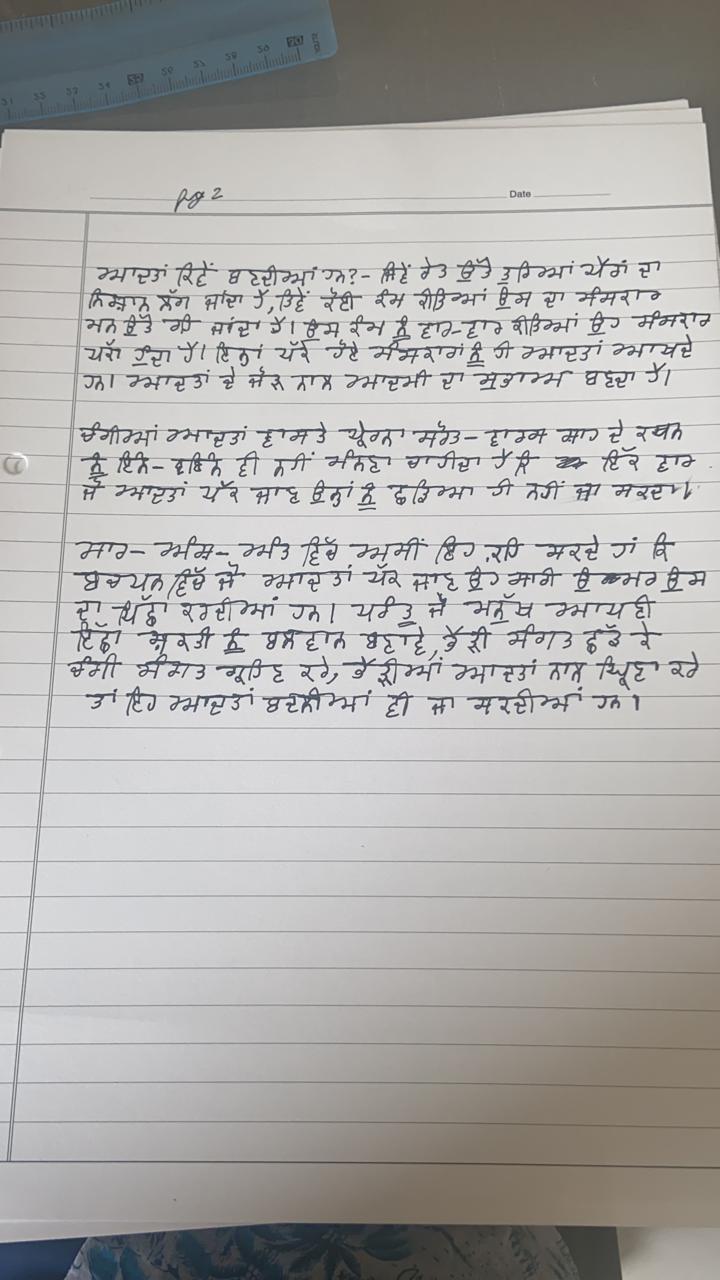 pg 2
Date
ਆਦਤਾਂ ਕਿਵੇਂ ਬਣਦੀਆਂ ਹਨ?- ਜਿਵੇਂ ਰੇਤ ਉੱਤੇ ਤੁਰਿਆਂ ਪੈਰਾਂ ਦਾ
ਨਿਸ਼ਾਨ ਲੱਗ ਜਾਂਦਾ ਹੈ, ਤਿਵੇਂ ਕੋਈ ਕੰਮ ਕੀਤਿਆਂ ਉਸ ਦਾ ਸੰਸਕਾਰ
ਮਨ ਉੱਤੇ ਰਹਿ ਜਾਂਦਾ ਹੈ। ਉਸ ਕੰਮ ਨੂੰ ਵਾਰ-ਵਾਰ ਕੀਤਿਆਂ ਉਹ ਸੰਸਕਾਰ
ਪੱਕਾ ਹੁੰਦਾ ਹੈ। ਇਨ੍ਹਾਂ ਪੱਕੇ ਹੋਏ ਸੰਸਕਾਰਾਂ ਨੂੰ ਹੀ ਆਦਤਾਂ ਆਖਦੇ
ਹਨ। ਆਦਤਾਂ ਦੇ ਜੋੜ ਨਾਲ ਆਦਮੀ ਦਾ ਸੁਭਾਅ ਬਣਦਾ ਹੈ।
ਚੰਗੀਆਂ ਆਦਤਾਂ ਵਾਸਤੇ ਪ੍ਰੇਰਨਾ ਸਰੋਤ- ਵਾਰਸ ਸ਼ਾਹ ਦੇ ਕਥਨ
ਨੂੰ ਇੰਨ-ਬਿੰਨ ਹੀ ਨਹੀਂ ਮੰਨਣਾ ਚਾਹੀਦਾ ਹੈ ਕਿ ਇੱਕ ਵਾਰ
ਜੋ ਆਦਤਾਂ ਪੱਕ ਜਾਣ ਉਨ੍ਹਾਂ ਨੂੰ ਛੱਡਿਆ ਹੀ ਨਹੀਂ ਜਾ ਸਕਦਾ।
ਸਾਰ- ਅੰਸ਼- ਅੰਤ ਵਿੱਚ ਅਸੀਂ ਇਹ ਕਹਿ ਸਕਦੇ ਹਾਂ ਕਿ
ਬਚਪਨ ਵਿੱਚ ਜੋ ਆਦਤਾਂ ਪੱਕ ਜਾਣ ਉਹ ਸਾਰੀ ਉਮਰ ਉਸ
ਦਾ ਪਿੱਛਾ ਕਰਦੀਆਂ ਹਨ। ਪਰੰਤੂ ਜੇ ਮਨੁੱਖ ਆਪਣੀ
ਇੱਛਾ ਸ਼ਕਤੀ ਨੂੰ ਬਲਵਾਨ ਬਣਾਵੇ, ਭੈੜੀ ਸੰਗਤ ਛੱਡ ਕੇ
ਚੰਗੀ ਸੰਗਤ ਗ੍ਰਹਿਣ ਕਰੇ, ਭੈੜੀਆਂ ਆਦਤਾਂ ਨਾਲ ਘ੍ਰਿਣਾ ਕਰੇ
ਤਾਂ ਇਹ ਆਦਤਾਂ ਬਦਲੀਆਂ ਵੀ ਜਾ ਸਕਦੀਆਂ ਹਨ।